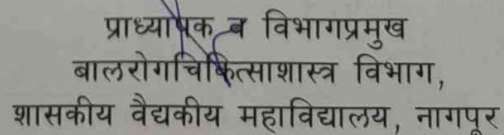 प्राध्यापक व विभागप्रमुख
बालरोगचिकित्साशास्त्र विभाग,
शासकीय वैद्यकीय महाविद्यालय, नागपूर